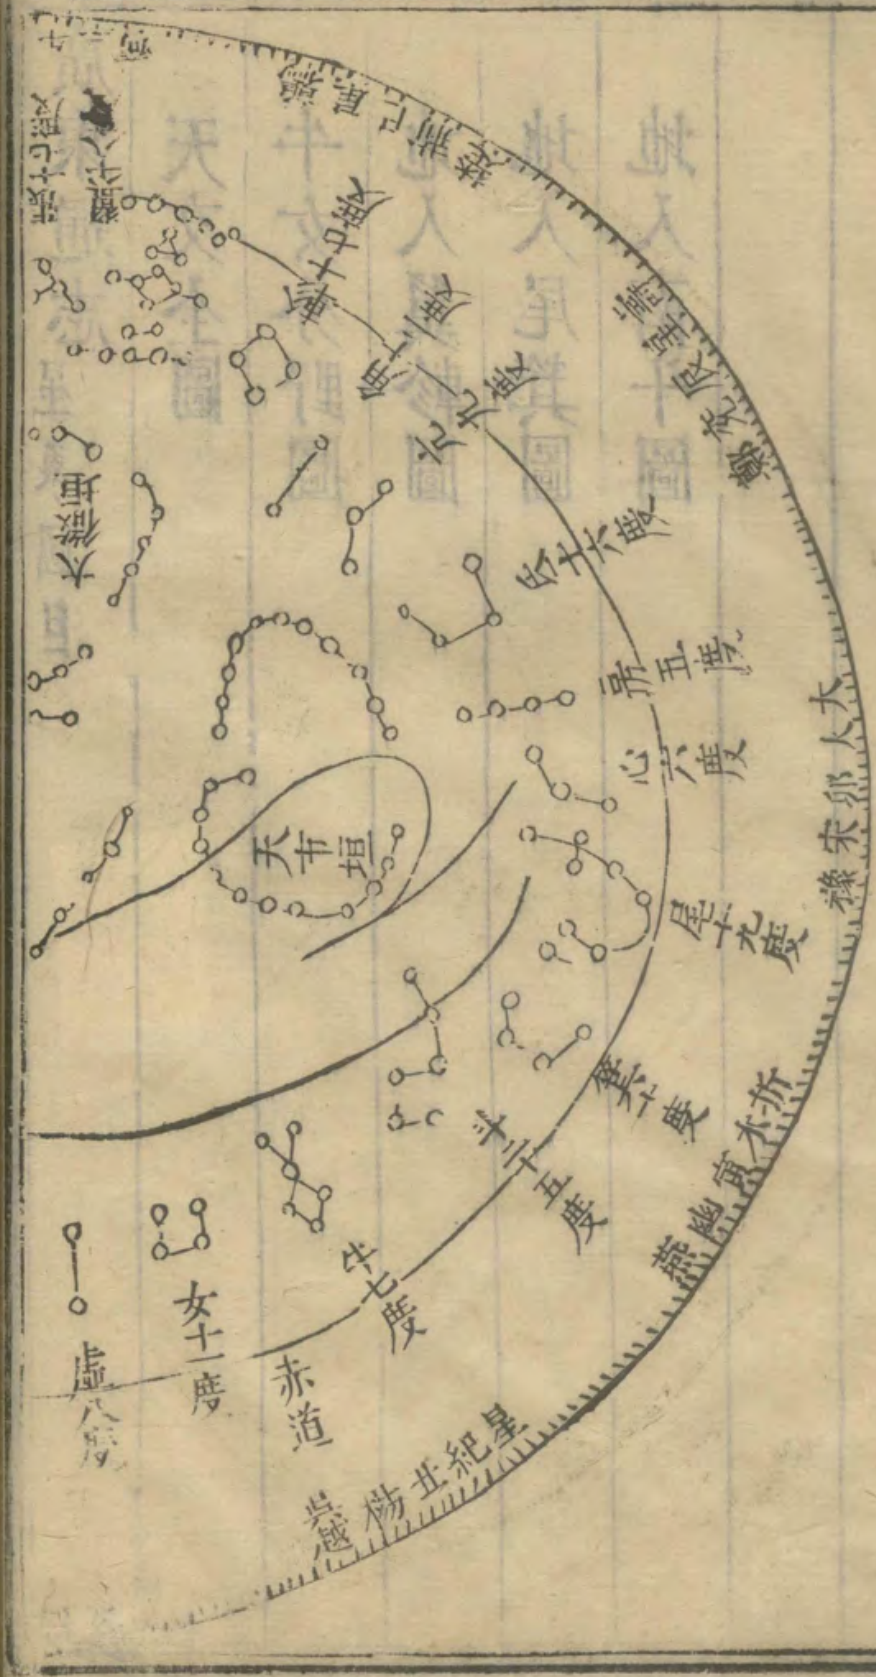 鶉尾巳荊楚
壽星辰兗鄭
大火卯宋豫
析木寅幽燕
星紀丑揚吳越
張十七度
翼十八
軫十七度
角十二度
亢九度
氐十六度
房五度
心六度
尾十九度
箕十度
斗二十五度
牛七度
女十一度
虛八度
赤道
太微垣
天市垣